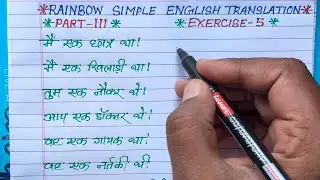 *RAINBOW SIMPLE ENGLISH TRANSLATION*
*PART-III *EXERCISE-5
मैं एक छात्र था!
मैं एक खिलाड़ी था!
तुम एक नौकर थे!
आप एक डॉक्टर थे!
वह एक गायक था!
वह एक नर्तकी थी!